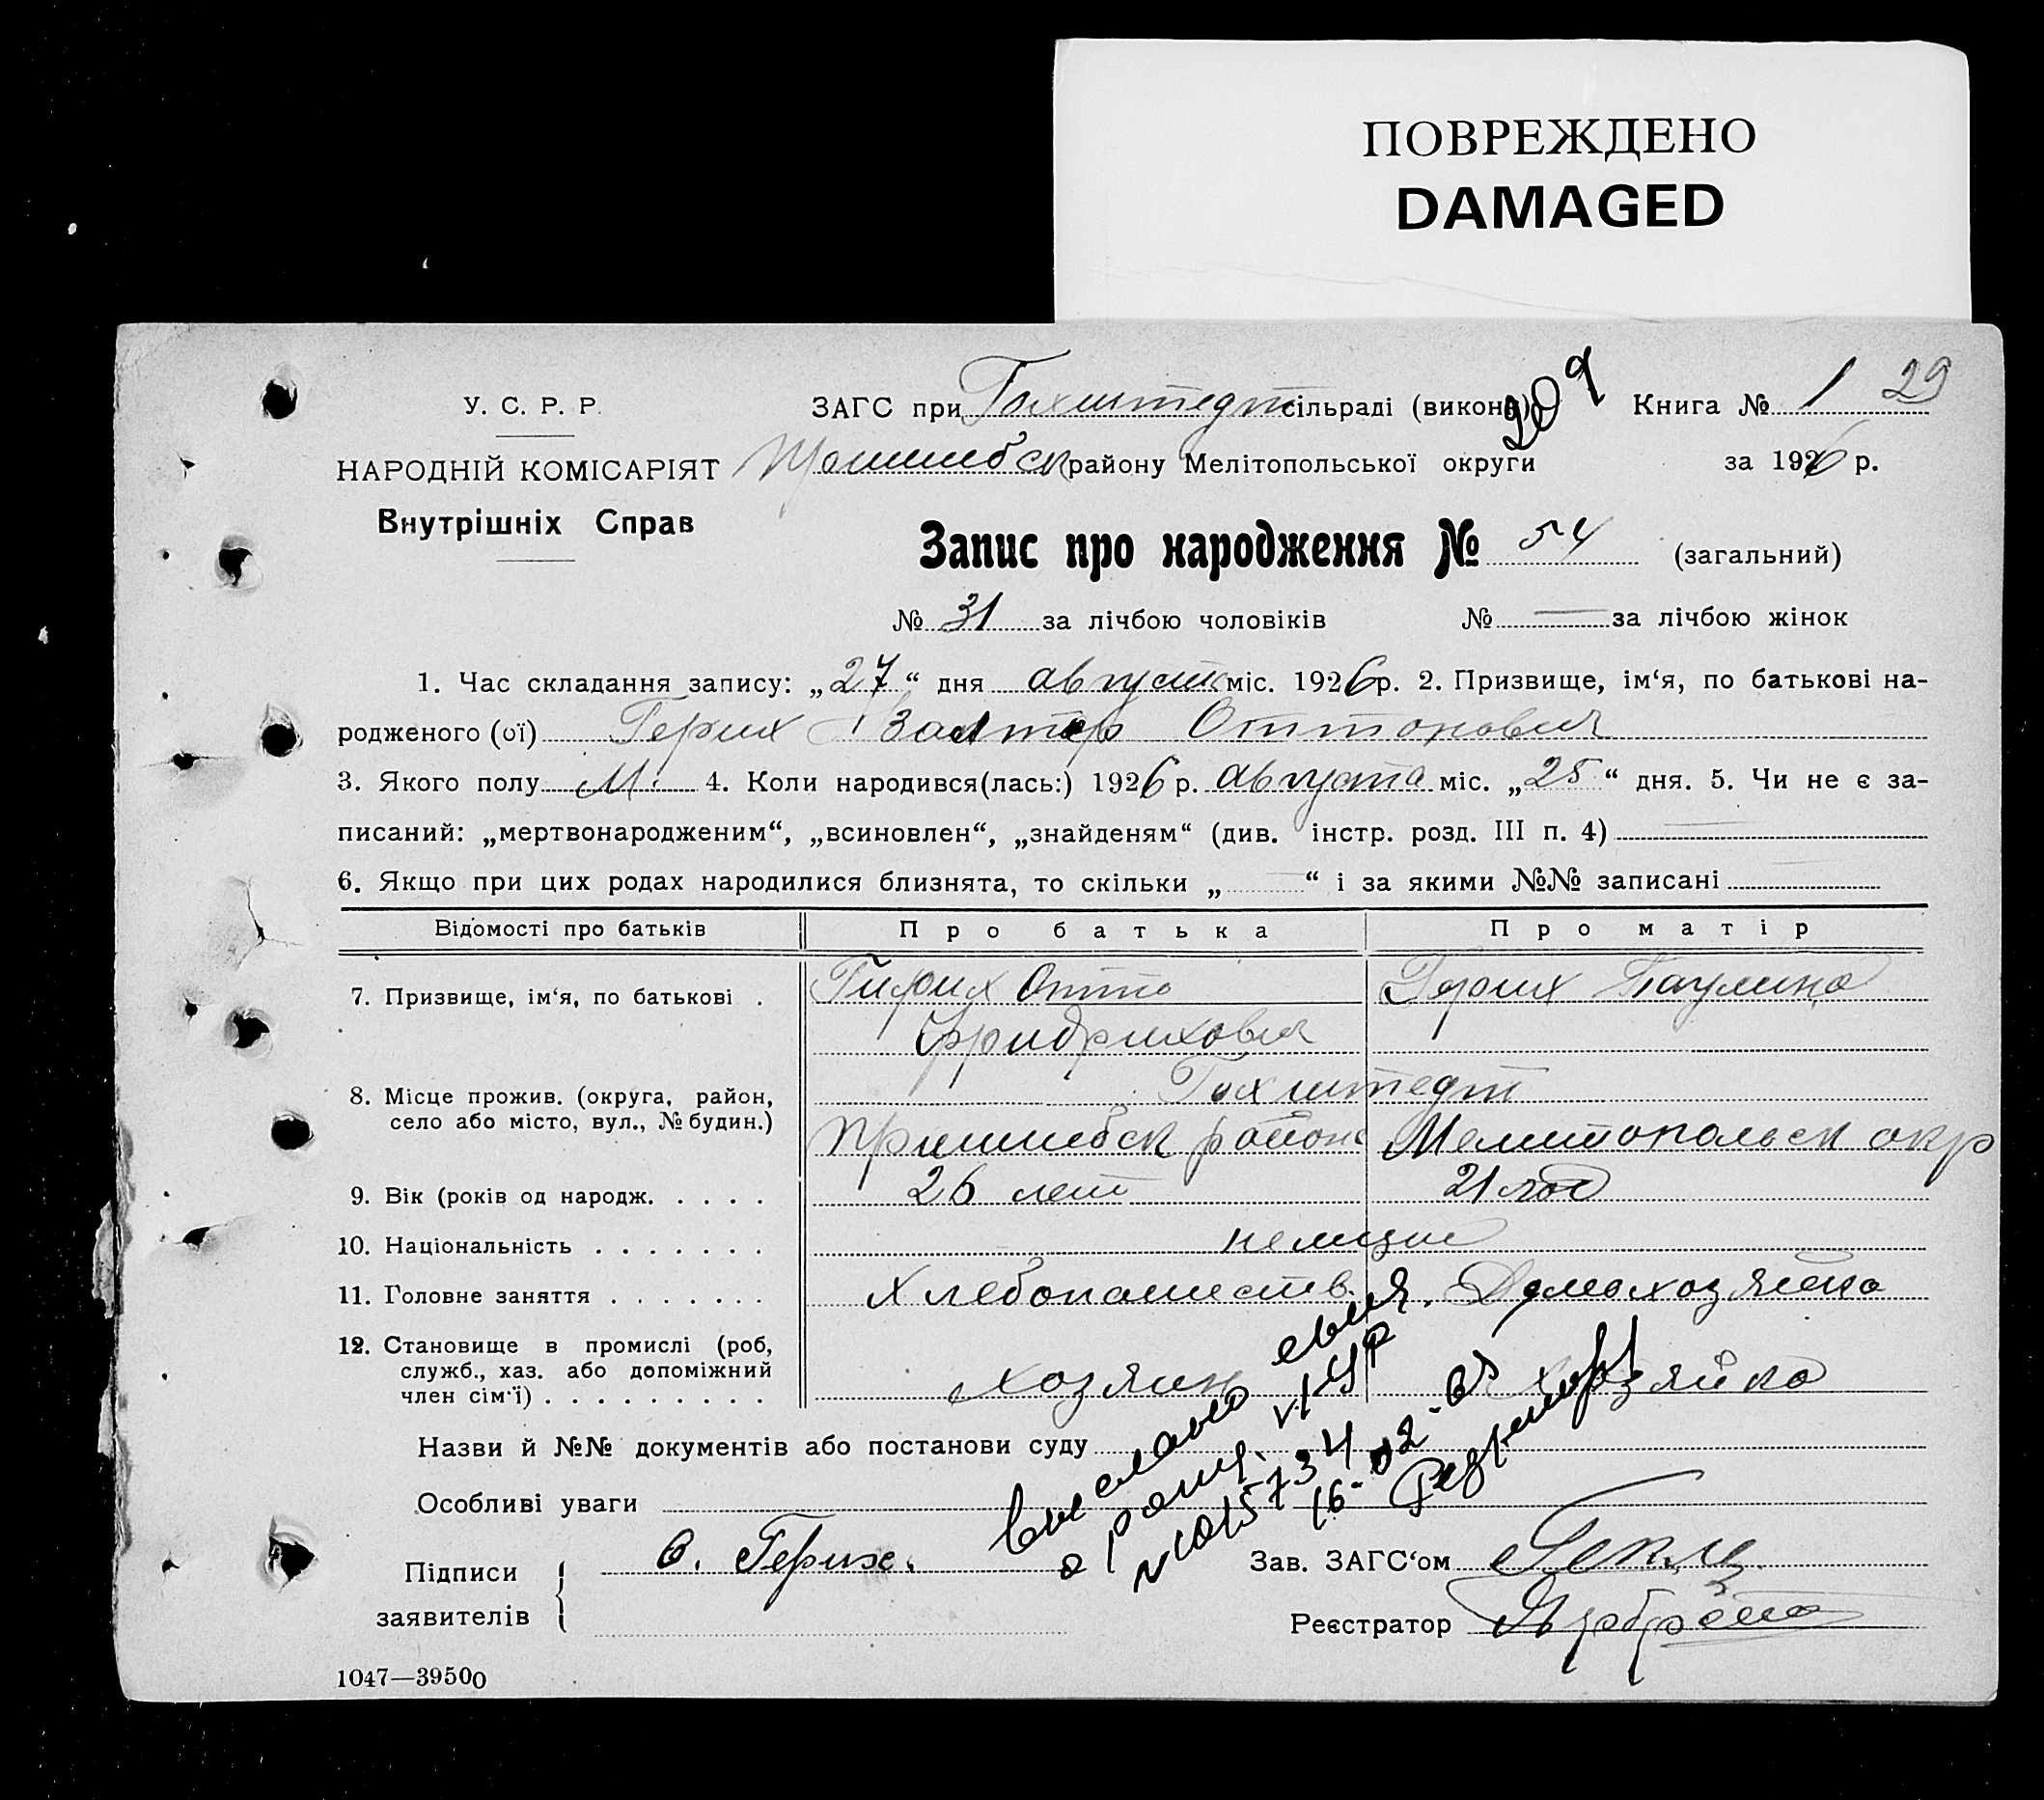 ПОВРЕЖДЕНО
DAMAGED
У. С. Р. Р.
НАРОДНІЙ КОМІСАРІЯТ
Внутрішніх Справ
ЗАГС при Гохштедт сільраді (викона) 209 Книга № 1 29
Пришибск району Мелітопольської округи за 1926 р.
Запис про народження № 54 (загальний)
№ 31 за лічбою чоловіків № — за лічбою жінок
1. Час складання запису: „27“ дня август міс. 1926 р. 2. Призвище, ім‘я, по батькові на-
родженого (ої) Герих Валтер Оттонович
3. Якого полу М. 4. Коли народився(лась:) 1926 р. августа міс. „25“ дня. 5. Чи не є за-
писаний: „мертвонародженим“, „всиновлен“, „знайденям“ (див. інстр. розд. III п. 4) —
6. Якщо при цих родах народилися близнята, то скільки „ — “ і за якими №№ записані
Відомості про батьків Про батька Про матір
7. Призвище, ім‘я, по батькові . Герих Отто Герих Паулина
Фридрихович
8. Місце прожив. (округа, район, Гохштедт
село або місто, вул., № будин.) Пришибск района Мелитопольск окр
9. Вік (років од народж. . . . . 26 лет 21 год
10. Національність . . . . . . . немцы
11. Головне заняття . . . . . . . хлебопашеств. Домохозяйка
12. Становище в промислі (роб,
служб., хаз. або допоміжний
член сім‘ї) . . . . . . . . . хозяин хозяйка
Назви й №№ документів або постанови суду
Особливі уваги
Выслано
о рожд. V1-ЯР
N 0157344
16-02-
Підписи
заявителів
О. Герих.
Зав. ЗАГС‘ом
Реєстратор
1047—39500